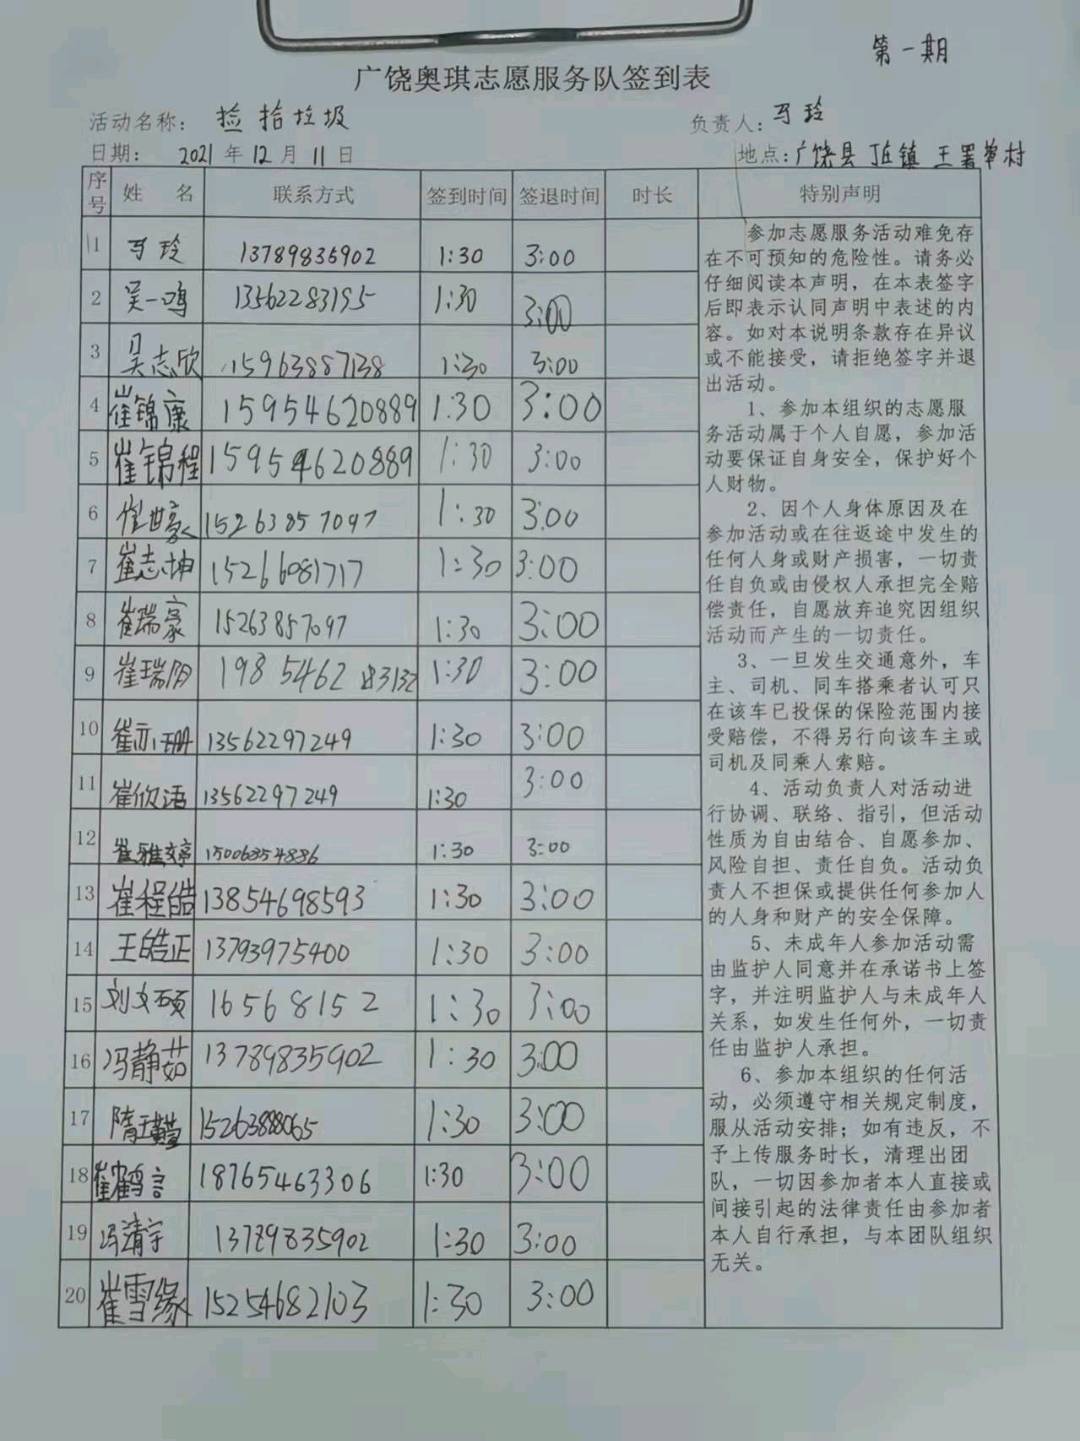 第一期
广饶奥琪志愿服务队签到表
活动名称： 捡拾垃圾 负责人：马玲
日期： 2021 年 12 月 11 日 地点：广饶县 丁庄镇 王署埠村
序号 姓 名 联系方式 签到时间 签退时间 时长 特别声明
1 马玲 13789835902 1:30 3:00
2 吴一鸣 13562283195 1:30 3:00
3 吴志欣 15963887138 1:30 3:00
4 崔锦康 15954620889 1:30 3:00
5 崔锦程 15954620889 1:30 3:00
6 崔世豪 15263857097 1:30 3:00
7 崔志坤 15266081717 1:30 3:00
8 崔瑞豪 15263857097 1:30 3:00
9 崔瑞阳 198 5462 1:30 3:00
10 崔 13562297249 1:30 3:00
11 崔欣语 13562297249 1:30 3:00
12 崔雅婷 15006354886 1:30 3:00
13 崔程皓 13854698593 1:30 3:00
14 王皓正 13793975400 1:30 3:00
15 刘文硕 16568152 1:30 3:00
16 冯静茹 13789835902 1:30 3:00
17 隋 15263888065 1:30 3:00
18 崔鹤言 18765463306 1:30 3:00
19 冯清宇 13789835902 1:30 3:00
20 崔雪缘 15254682103 1:30 3:00
参加志愿服务活动难免存
在不可预知的危险性。请务必
仔细阅读本声明，在本表签字
后即表示认同声明中表述的内
容。如对本说明条款存在异议
或不能接受，请拒绝签字并退
出活动。
1、参加本组织的志愿服
务活动属于个人自愿，参加活
动要保证自身安全，保护好个
人财物。
2、因个人身体原因及在
参加活动或在往返途中发生的
任何人身或财产损害，一切责
任自负或由侵权人承担完全赔
偿责任，自愿放弃追究因组织
活动而产生的一切责任。
3、一旦发生交通意外，车
主、司机、同车搭乘者认可只
在该车已投保的保险范围内接
受赔偿，不得另行向该车主或
司机及同乘人索赔。
4、活动负责人对活动进
行协调、联络、指引，但活动
性质为自由结合、自愿参加、
风险自担、责任自负。活动负
责人不担保或提供任何参加人
的人身和财产的安全保障。
5、未成年人参加活动需
由监护人同意并在承诺书上签
字，并注明监护人与未成年人
关系，如发生任何外，一切责
任由监护人承担。
6、参加本组织的任何活
动，必须遵守相关规定制度，
服从活动安排；如有违反，不
予上传服务时长，清理出团
队，一切因参加者本人直接或
间接引起的法律责任由参加者
本人自行承担，与本团队组织
无关。